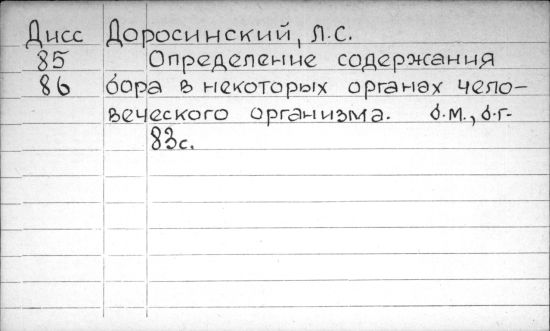 Дисс Доросинский, Л.С.
85 Определение содержания
86 бора в некоторых органах чело-
веческого организма. б.м., б.г.
83с.